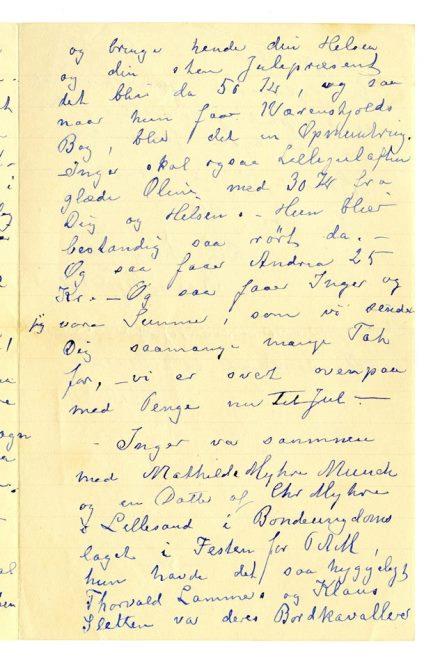 og bringe hende din Helsen
og din store Julepræsent
det blir da 50 Kr, og saa
naar hun faar Wærenskjolds
Bog, blir det en Opmuntring.
– Inger skal ogsaa Lillejulaften
glæde Olivia med 30 Kr fra
Dig og Helsen. – Hun blir
bestandig saa rørt da. –
Og saa faar Andrea 25
Kr. – Og saa faar Inger og
jeg vore Summer, som vi sender
Dig saamange mange Tak
for, – vi er svært ovenpaa
med Penge nu til Jul –
– Inger var sammen
med Mathilde Myhre Munch
og en Datter af Chr Myhre
i Lillesand i Bondeungdoms
laget i Festen for
hun havde det saa hyggeligt
Thorvald Lammers og Klaus
Sletten var deres Bordkavallerer